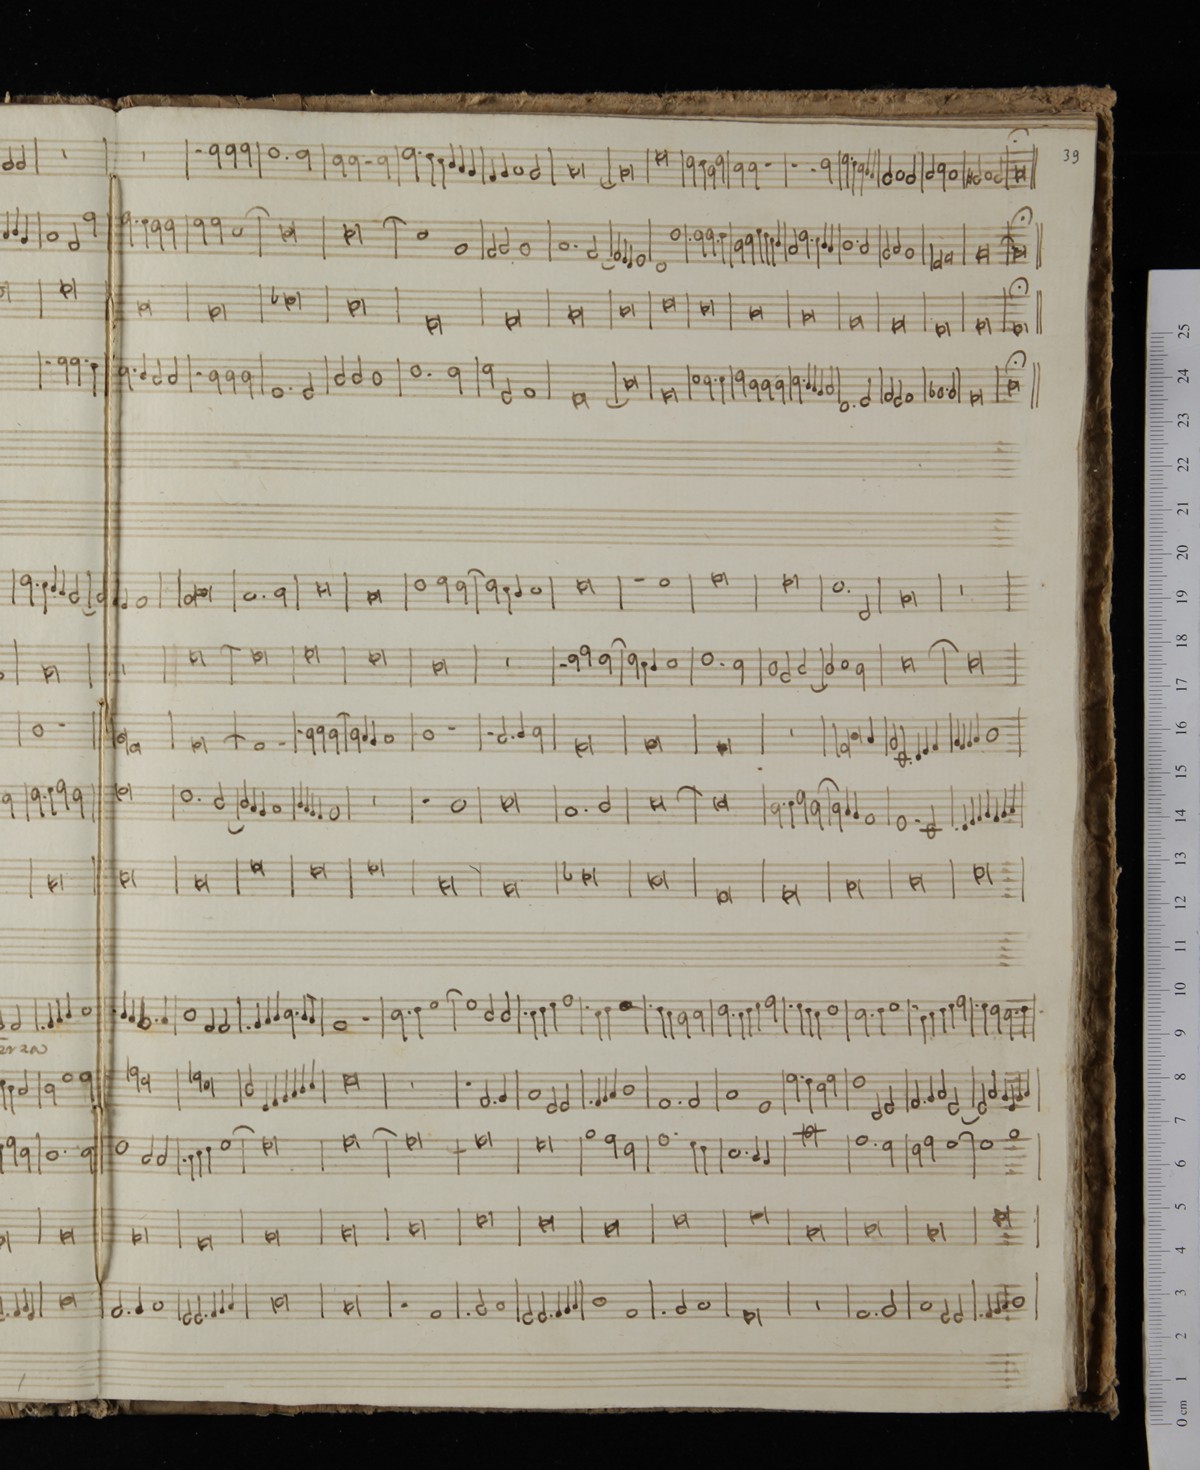 39
25
24
23
22
21
20
19
18
17
16
15
14
13
12
11
10
9
8
7
6
5
4
3
2
1
0 cm